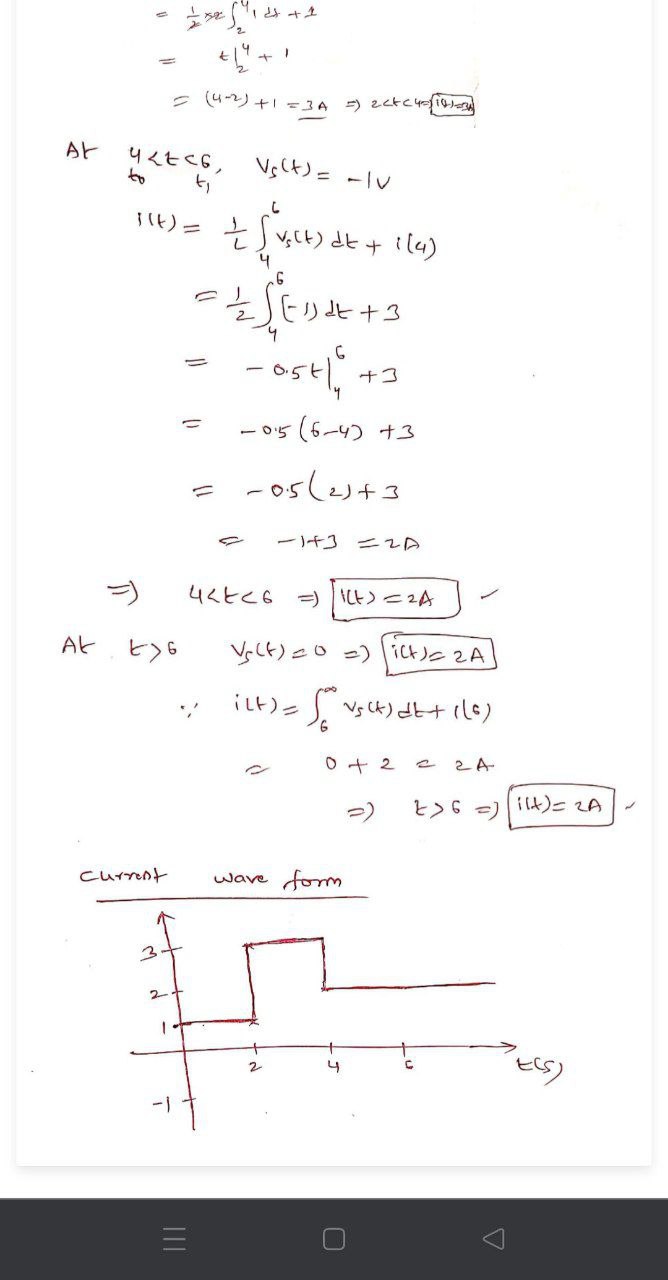 = 1/2 ×2 ∫₂⁴ 1 dt + 1
= t|₂⁴ + 1
= (4-2) + 1 = 3A ⇒ 2<t<4 ⇒ i(t)=3A
At 4<t<6, Vs(t) = -1V
t₀ t₁
i(t) = 1/L ∫₄⁶ Vs(t) dt + i(4)
= 1/2 ∫₄⁶ (-1) dt + 3
= -0.5t|₄⁶ + 3
= -0.5 (6-4) + 3
= -0.5 (2) + 3
= -1+3 = 2A
⇒ 4<t<6 ⇒ i(t) = 2A
At t>6 Vs(t) = 0 ⇒ i(t) = 2A
∵ i(t) = ∫₆^∞ Vs(t) dt + i(6)
= 0 + 2 = 2A
⇒ t>6 ⇒ i(t) = 2A
current wave form
3
2
1
2 4 6 t(s)
-1